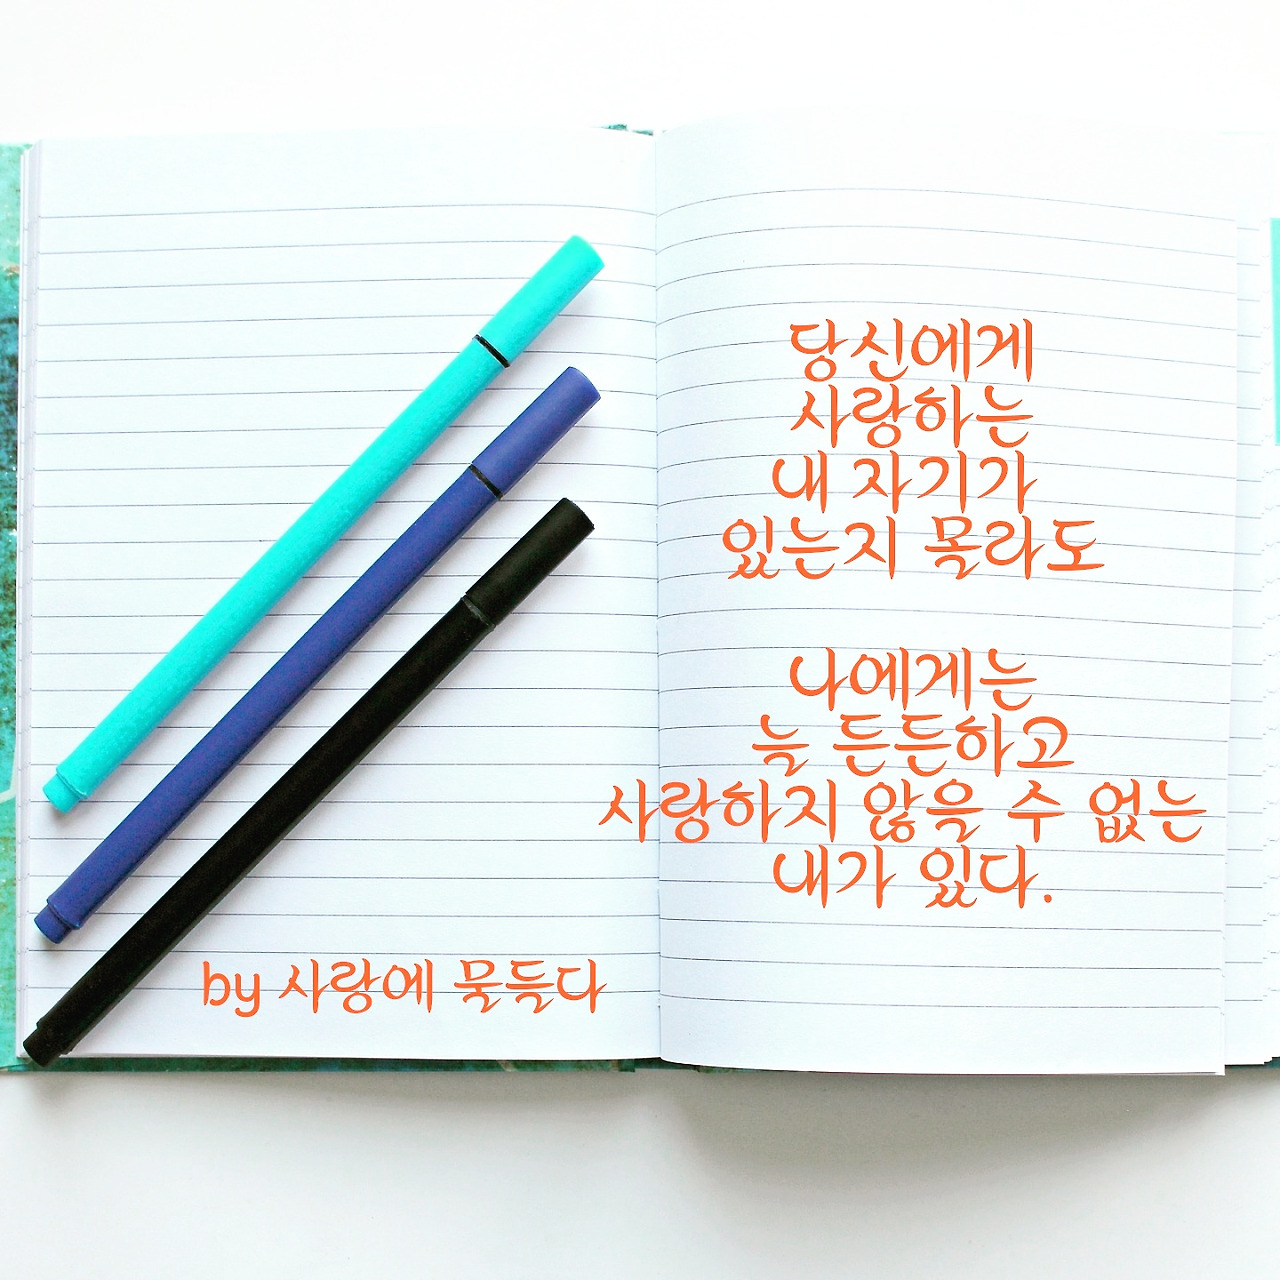 당신에게
사랑하는
내 자기가
있는지 몰라도
나에게는
늘 든든하고
사랑하지 않을 수 없는
내가 있다.
by 사랑에 물들다